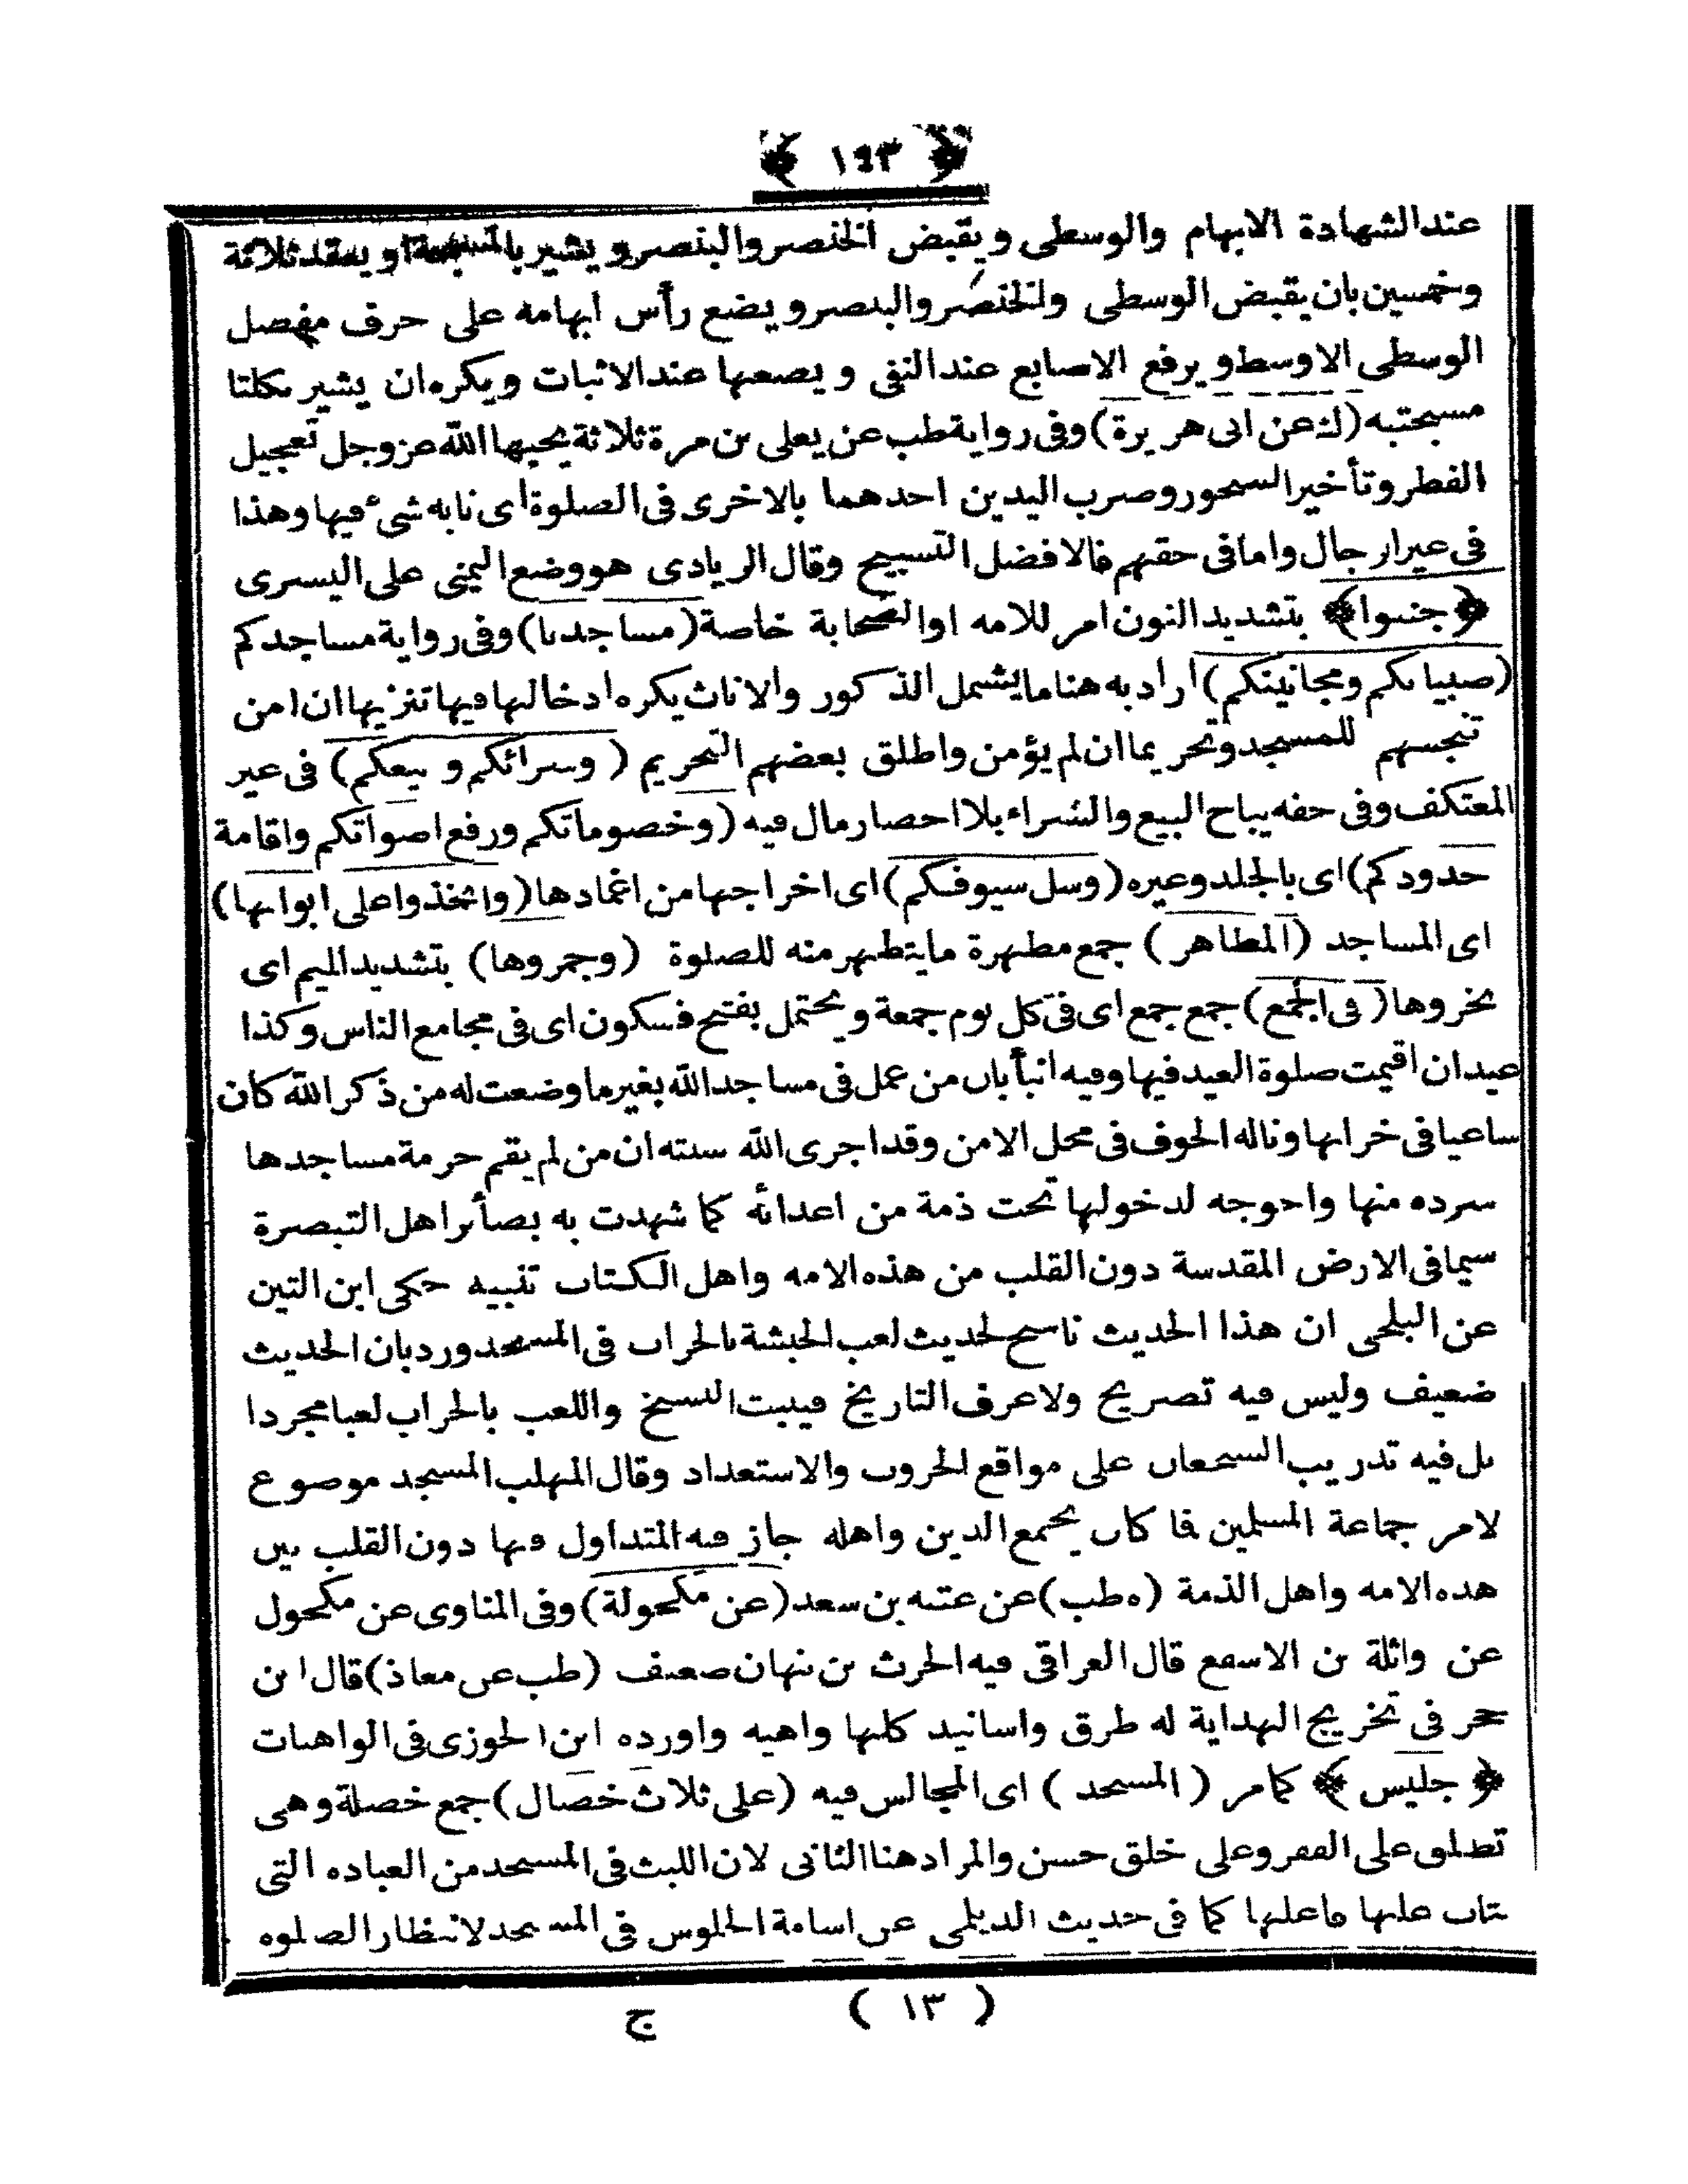 ﴿ ١٩٣ ﴾
عند الشهادة الابهام والوسطى ويقبض الخنصر والبنصر ويشير بالمسبحة او يعقد ثلاثة
وخمسين بان يقبض الوسطى والخنصر والبنصر ويضع رأس ابهامه على حرف مفصل
الوسطى الاوسط ويرفع الاصابع عند النفى ويضعها عند الاثبات ويكره ان يشير بكلتا
مسبحتيه (ك عن ابى هريرة) وفى رواية طب عن يعلى بن مرة ثلاثة يحبها الله عز وجل تعجيل
الفطر وتأخير السحور وضرب اليدين احدهما بالاخرى فى الصلوة اى نابه شئ فيها وهذا
فى غير الرجال واما فى حقهم فالافضل التسبيح وقال الزيادى هو وضع اليمنى على اليسرى
﴿جنبوا﴾ بتشديد النون امر للامه او الصحابة خاصة (مساجدنا) وفى رواية مساجدكم
(صبيانكم ومجانينكم) اراد به هنا ما يشمل الذكور والاناث يكره ادخالها فيها تنزيها ان امن
تنجسهم للمسجد وتحريما ان لم يؤمن واطلق بعضهم التحريم (وشرائكم وبيعكم) فى غير
المعتكف وفى حقه يباح البيع والشراء بلا احضار مال فيه (وخصوماتكم ورفع اصواتكم واقامة
حدودكم) اى بالجلد وغيره (وسل سيوفكم) اى اخراجها من اغمادها (واتخذوا على ابوابها)
اى المساجد (المطاهر) جمع مطهرة ما يتطهر منه للصلوة (وجمروها) بتشديد الميم اى
بخروها (فى الجمع) جمع جمع اى فى كل يوم جمعة ويحتمل بفتح فسكون اى فى مجامع الناس وكذا
عيد ان اقيمت صلوة العيد فيها وفيه انبأ بان من عمل فى مساجد الله بغير ما وضعت له من ذكر الله كان
ساعيا فى خرابها وناله الخوف فى محل الامن وقد اجرى الله سنته ان من لم يقم حرمة مساجدها
سرده منها واحوجه لدخولها تحت ذمة من اعدائه كما شهدت به بصائر اهل التبصرة
سيما فى الارض المقدسة دون القلب من هذه الامه واهل الكتاب تنبيه حكى ابن التين
عن البلخى ان هذا الحديث ناسخ لحديث لعب الحبشة بالحراب فى المسجد ورد بان الحديث
ضعيف وليس فيه تصريح ولا عرف التاريخ فيثبت النسخ واللعب بالحراب لعبا مجردا
بل فيه تدريب السجعان على مواقع الحروب والاستعداد وقال المهلب المسجد موضوع
لامر جماعة المسلمين فما كان يجمع الدين واهله جاز فيه المتداول فيها دون القلب بين
هذه الامه واهل الذمة (ه طب) عن عتبه بن سعد (عن مكحولة) وفى المناوى عن مكحول
عن واثلة بن الاسقع قال العراقى فيه الحرث بن نبهان ضعيف (طب عن معاذ) قال ابن
حجر فى تخريج الهداية له طرق واسانيد كلها واهيه واورده ابن الجوزى فى الواهيات
﴿جليس﴾ كمامر (المسجد) اى المجالس فيه (على ثلاث خصال) جمع خصلة وهى
تطلق على الفقر وعلى خلق حسن والمراد هنا الثانى لان اللبث فى المسجد من العباده التى
يثاب عليها فاعلها كما فى حديث الديلمى عن اسامة الجلوس فى المسجد لانتظار الصلوه
( ١٣ ) ج